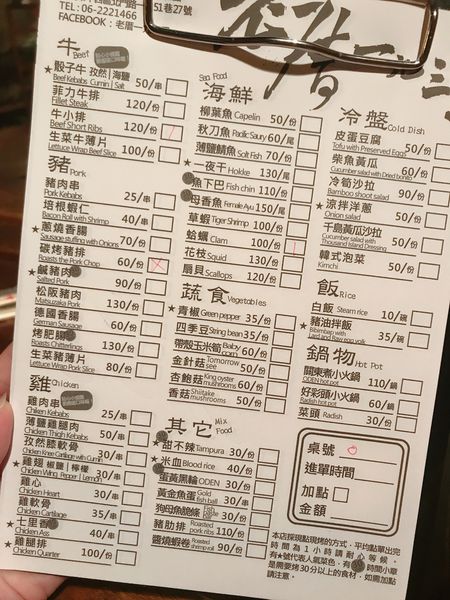 TEL: 06-2221466
51巷27號
FACEBOOK:
牛 Beef
★骰子牛 孜然|海鹽 50/串
Beef Kebabs Cumin | Salt
菲力牛排 120/份
Fillet Steak
牛小排 120/份
Beef Short Ribs
生菜牛薄片 100/份
Lettuce Wrap Beef Slice
豬 Pork
豬肉串 25/串
Pork Kebabs
培根蝦仁 40/串
Bacon Roll with Shrimp
★蔥燒香腸 70/份
Sausage stuffing with Onions
碳烤豬排 60/份
Roasts the Pork Chop
★鹹豬肉 90/份
Salted Pork
松阪豬肉 130/份
Matsuzaka Pork
德國香腸 60/份
German Sausage
烤肥腸 130/份
Roasts Chitterlings
生菜豬薄片 80/份
Lettuce Wrap Pork Slice
雞 Chicken
雞肉串 25/串
Chiken Kebabs
薄鹽雞腿肉 50/串
Chicken Thigh Kebabs
孜然膝軟骨 35/串
Chicken Knee Cartilage with Cumin
★雞翅 椒鹽|檸檬 30/串
Chicken Wing Pepper | Lemon
雞心 30/串
Chicken Heart
雞軟骨 35/串
Chicken Cartilage
★七里香 40/串
Chicken Ass
★雞腿排 100/份
Chicken Quarter
海鮮 Sea Food
柳葉魚 Capelin 50/份
秋刀魚 Pacific Saury 60/尾
薄鹽鯖魚 Solt Fish 70/份
★一夜干 Hokke 130/份
魚下巴 Fish chin 110/份
母香魚 Female Ayu 150/尾
草蝦 Tiger Shrimp 100/份
蛤蠣 Clam 100/份
花枝 Squid 130/份
扇貝 Scallops 120/份
蔬食 Vegetables
★青椒 Green pepper 35/份
四季豆 String bean 35/份
帶殼玉米筍 Baby corn 60/份
金針菇 Tomorrow see 50/份
杏鮑菇 King oyster mushrooms 60/份
香菇 Shiitake mushrooms 50/份
其它 Mix Food
★甜不辣 Tampura 30/份
★米血 Blood rice 40/份
蛋黃黑輪 ODEN 30/份
黃金魚蛋 Gold fish ball 30/串
狗母魚脆條 Fish 60/份
豬肋排 Roasted pork ribs 110/份
醬燒蝦卷 Roasted shrimp roll 90/份
冷盤 Cold Dish
皮蛋豆腐 50/份
Tofu with Preserved Eggs
柴魚黃瓜 60/份
Cucumber salad with Dried bonito
冷筍沙拉 90/份
Bamboo shoot salad
★涼拌洋蔥 50/份
Onion salad
千島黃瓜沙拉 60/份
Cucumber salad with Thousand Island Dressing
韓式泡菜 50/份
Kimchi
飯 Rice
白飯 Steam rice 10/碗
★豬油拌飯 35/碗
Bibimbap with Lard and Raw egg yolk
鍋物 Hot Pot
關東煮小火鍋 110/鍋
ODEN hot pot
好彩頭小火鍋 60/鍋
Radish hot pot
菜頭 Radish 30/份
桌號
進單時間
加點
金額
本店採現點現烤的方式，平均點單出完
時間為1小時請耐心等候，
有★號代表人氣菜色，有 時間小章
是需要烤30分以上的食材，如需加點
請注意。